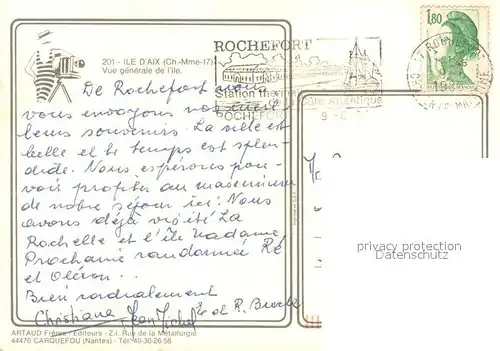 201 - ILE D'AIX (Ch.-Mme-17)
Vue générale de l'île.
ROCHEFORT
Station thermale
Côte Atlantique
ROCHEFORT
1,80
De Rochefort nous
vous envoyons nos meil
leurs souvenirs. La ville est
belle et le temps est splen-
dide. Nous espérons pou-
voir profiter au maximum
de notre séjour ici. Nous
avons déjà visité La
Rochelle et l'île Madame
Prochaine randonnée Ré
et Oléron..
Bien cordialement
Christiane Jean Michel
et R.
privacy protection
Datenschutz
ARTAUD Frères - Editeurs - Z.I. Rue de la Métallurgie
44470 CARQUEFOU (Nantes) - Tél. 40-30-26-56